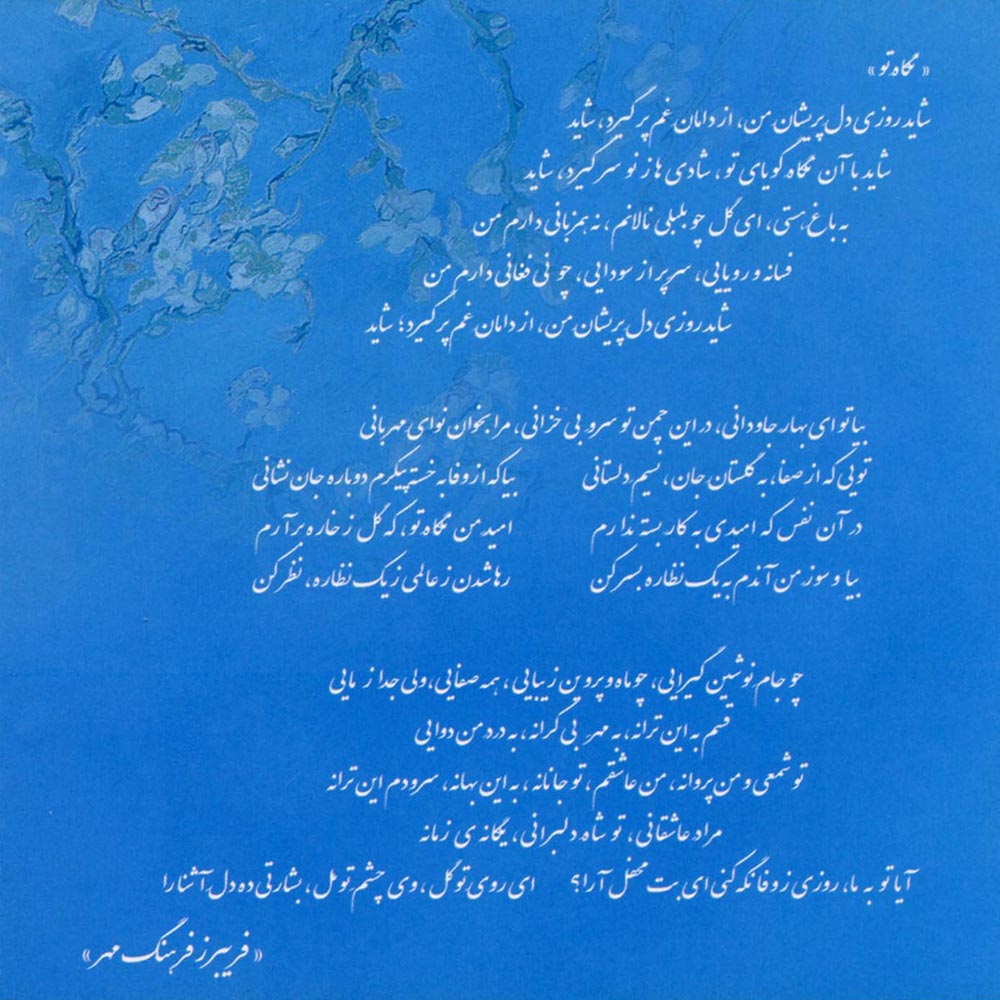 « نگاه تو »
شاید روزی دل پریشان من، از دامان غم پر گیرد، شاید
شاید با آن نگاه گویای تو، شادی ها ز نو سر گیرد، شاید
به باغ هستی، ای گل چو بلبلی نالانم، نه همزبانی دارم من
فسانه و رویایی، سر پر از سودایی، چو نی فغانی دارم من
شاید روزی دل پریشان من، از دامان غم پر گیرد؛ شاید
بیا تو ای بهار جاودانی، در این چمن تو سرو بی خزانی، مرا بخوان نوای مهربانی
تویی که از صفا، به گلستان جان، نسیم دلستانی بیا که از وفا به خسته پیکرم دوباره جان نشانی
در آن نفس که امیدی به کار بسته ندارم امید من نگاه تو، که گل ز خاره بر آرم
بیا و سوز من آندم به یک نظاره بسر کن رها شدن ز عالمی ز یک نظاره، نظر کن
چو جام نوشین گیرایی، چو ماه و پروین زیبایی، همه صفایی، ولی جدا ز مایی
قسم به این ترانه، به مهر بی کرانه، به درد من دوایی
تو شمعی و من پروانه، من عاشقم، تو جانانه، به این بهانه، سرودم این ترانه
مراد عاشقانی، تو شاه دلبرانی، یگانه ی زمانه
آیا تو به ما، روزی ز وفا نگه کنی ای بت محفل آرا؟ ای روی تو گل، وی چشم تو مل، بشارتی ده دل آشنا را
« فریبرز فرهنگ مهر »